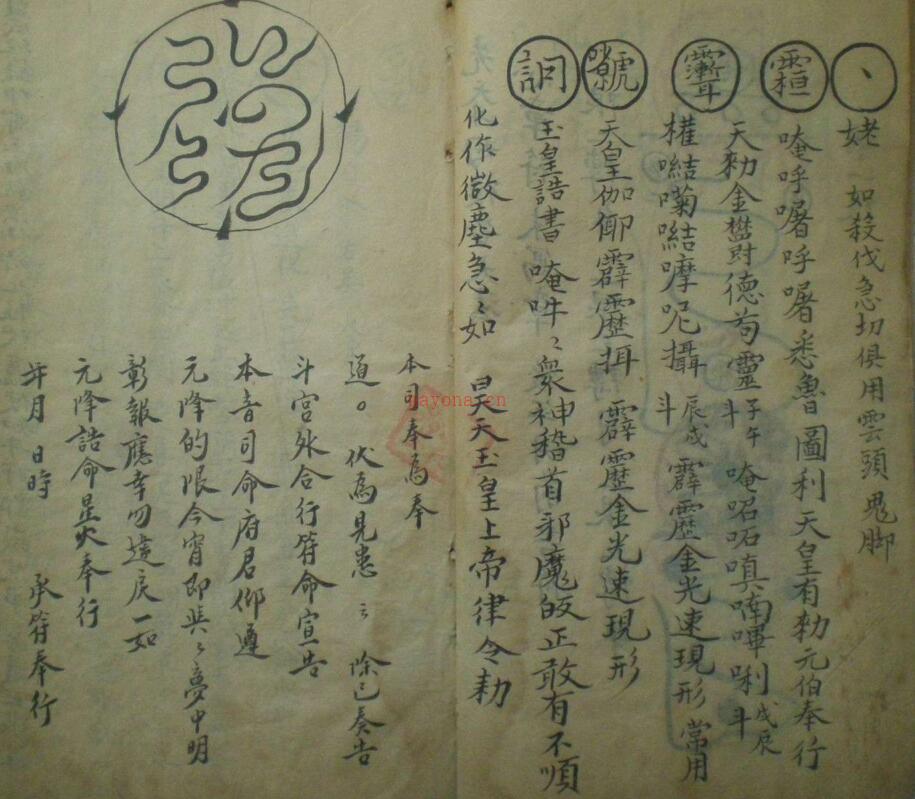 丶 姥 如殺伐急切俱用雲頭鬼脚
唵呼囑呼囑悉魯圖利天皇有勑元伯奉行
天勑金 德 靈子午斗 唵 嗔喃 唎戌辰斗
權 摩呢攝辰戌斗 霹靂金光速現形常用
號 天皇伽 霹靂 霹靂金光速現形
玉皇誥書唵吽〻衆神稽首邪魔皈正敢有不順
化作微塵急〻如 昊天玉皇上帝律令勑
本司奉爲奉
道。伏爲見患〻 除已奏告
斗宮外合行符命宣告
本音司命府君仰遵
元降的限今宵即與〻夢中明
彰報應幸勿違戾一如
元降誥命星火奉行
年月日時 承符奉行
nayona.cn